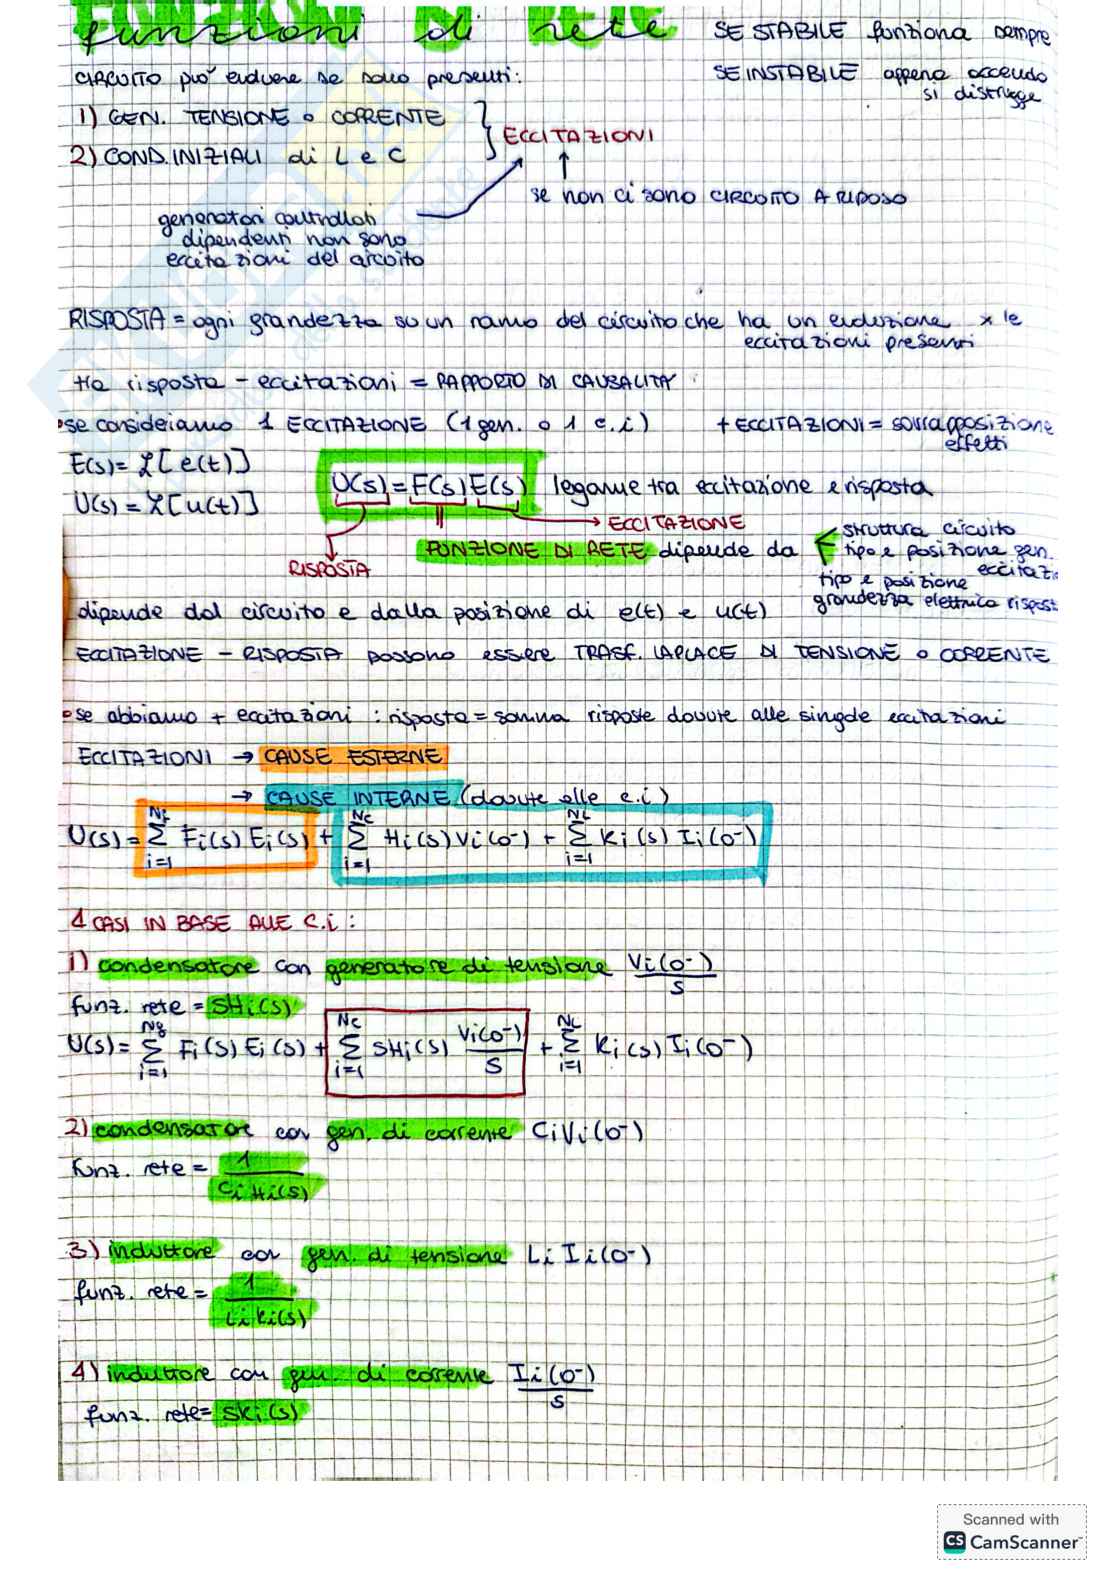 FUNZIONI DI RETE
funzioni di rete
SE STABILE funziona sempre
SE INSTABILE appena accendo
si distrugge
CIRCUITO può evolvere se sono presenti:
1) GEN. TENSIONE o CORRENTE
2) COND. INIZIALI di L e C
ECCITAZIONI
se non ci sono CIRCUITO A RIPOSO
generatori controllati
dipendenti non sono
eccitazioni del circuito
RISPOSTA = ogni grandezza su un ramo del circuito che ha un evoluzione x le
eccitazioni presenti
tra risposta - eccitazioni = RAPPORTO DI CAUSALITA'
•se consideriamo 1 ECCITAZIONE (1 gen. o 1 c.i)
+ ECCITAZIONI = sovrapposizione
effetti
E(s) = ℒ[e(t)]
U(s) = ℒ[u(t)]
U(s) = F(s) E(s) legame tra eccitazione e risposta
ECCITAZIONE
RISPOSTA
FUNZIONE DI RETE dipende da
struttura circuito
tipo e posizione gen.
eccitaz
tipo e posizione
grandezza elettrica rispost
dipende dal circuito e dalla posizione di e(t) e u(t)
ECCITAZIONE - RISPOSTA possono essere TRASF. LAPLACE DI TENSIONE o CORRENTE
•se abbiamo + eccitazioni : risposta = somma risposte dovute alle singole eccitazioni
ECCITAZIONI → CAUSE ESTERNE
→ CAUSE INTERNE (dovute alle c.i)
U(s) = Σ_{i=1}^{Nf} Fi(s) Ei(s) + Σ_{i=1}^{Nc} Hi(s) Vi(0⁻) + Σ_{i=1}^{NL} Ki(s) Ii(0⁻)
4 CASI IN BASE ALLE C.i :
1) condensatore con generatore di tensione Vi(0⁻)/s
funz. rete = sHi(s)
U(s) = Σ_{i=1}^{Ng} Fi(s) Ei(s) + Σ_{i=1}^{Nc} sHi(s) Vi(0⁻)/s + Σ_{i=1}^{NL} Ki(s) Ii(0⁻)
2) condensatore con gen. di corrente CiVi(0⁻)
funz. rete = 1/CiHi(s)
3) induttore con gen. di tensione Li Ii(0⁻)
funz. rete = 1/LiKi(s)
4) induttore con gen. di corrente Ii(0⁻)/s
funz. rete = sKi(s)
Scanned with
CS CamScanner